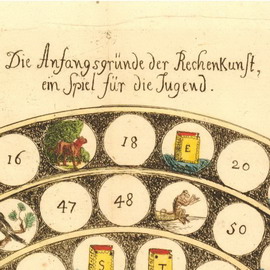 Die Anfangsgründe der Rechenkunst,
ein Spiel für die Jugend.
16 18 E 20
47 48 50
S T